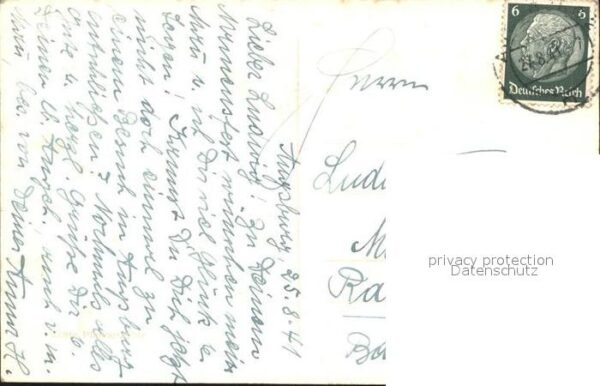 Augsburg, 25.8.41
Lieber Ludwig! Zu Deinem
Namensfest wünschen meine
Frau u. ich Dir viel Glück u.
Segen! Kannst Du Dich jetzt
nicht doch einmal zu
einem Besuch in Augsburg
entschließen? Nochmals alles
Gute u. herzl. Grüße Dir u.
Deinen lb. Angeh., auch v. m.
Frau, bes. von Deiner Anna H.
Herrn
Lud
M
Ra
Ba
6 6
Deutsches Reich
privacy protection
Datenschutz